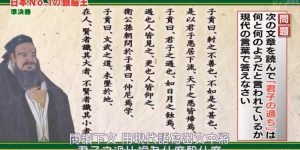 日本No.1の頭脳王
準決勝
問題
次の文章を読んで「君子の過ち」は
何と何のようだと言われているか
現代の言葉で答えなさい
子貢曰、紂之不善也、不如是之甚也。
是以君子惡居下流、天下之惡皆歸焉。
子貢曰、君子之過也、如日月之食焉。
過也人皆見之、更也人皆仰之。
衛公孫朝問於子貢曰、仲尼焉學。
子貢曰、文武之道、未墜於地、
在人。賢者識其大者、不賢者識其小
下文 用現代語寫出文中將
君子之過比喻為什麼和什麼